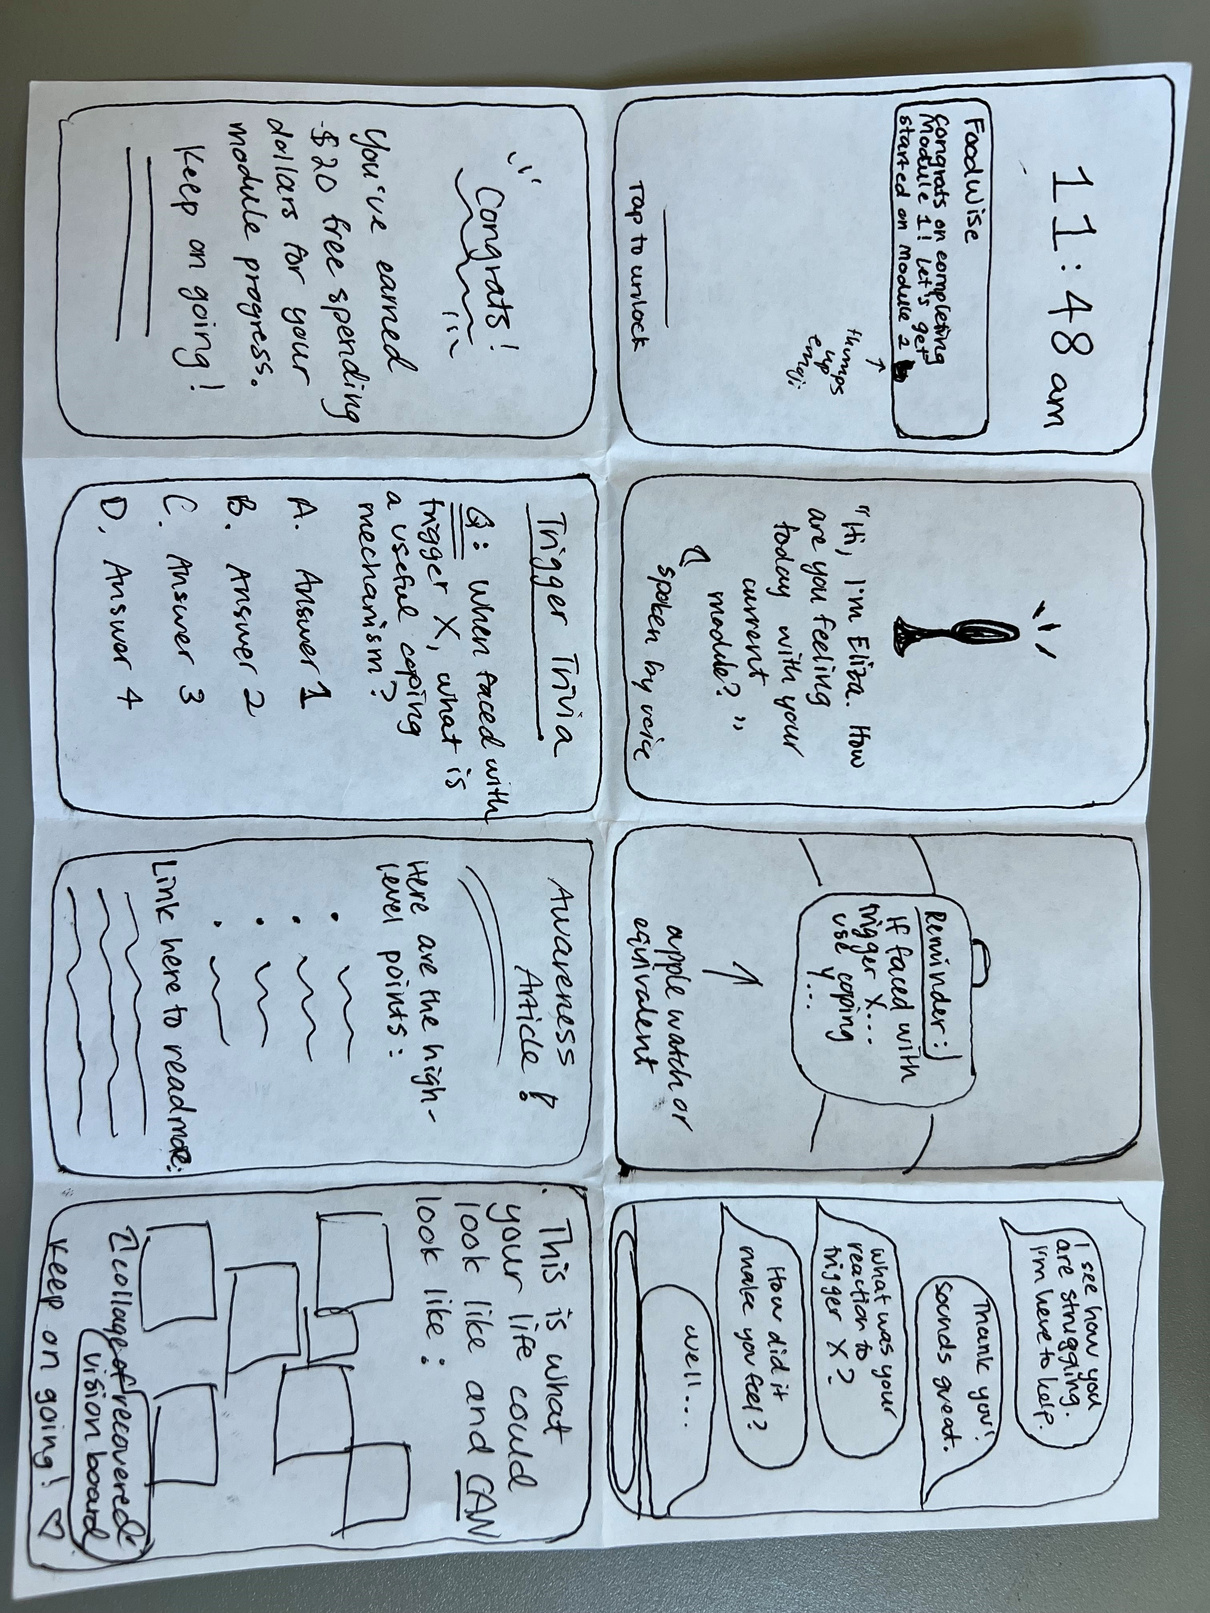 11:48 am
Foodwise
congrats on completing
Module 1! Let's get
started on Module 2
thumps
up
emoji
Tap to unlock
"Hi, I'm Eliza. How
are you feeling
today with your
current
module?"
spoken by voice
Reminder:)
if faced with
trigger X...
use coping
y...
apple watch or
equivalent
I see how you
are struggling.
I'm here to help.
Thank you!
sounds great.
what was your
reaction to
trigger X?
How did it
make you feel?
well....
Congrats!
You've earned
$20 free spending
dollars for your
module progress.
Keep on going!
Trigger Trivia
Q: When faced with
trigger X, what is
a useful coping
mechanism?
A. Answer 1
B. Answer 2
C. Answer 3
D. Answer 4
Awareness
Article!
Here are the high-
level points:
Link here to read more:
This is what
your life could
look like and CAN
look like:
collage of "recovered"
vision board
Keep on going! ♡